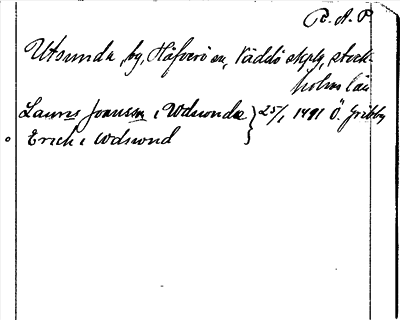 P. A. P
Utsunda, by, Häfverö sn, Väddö skplg, Stock-
holms län
Laurens Joansson i Wdsunda } 25/1 1491 Ö. Gribby
Erich i Wdsund